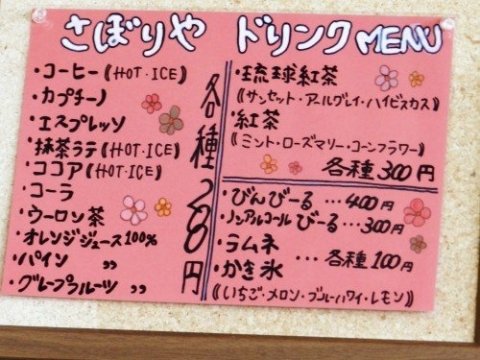 さぼりや ドリンクMENU
・コーヒー(HOT・ICE)
・カプチーノ
・エスプレッソ
・抹茶ラテ(HOT・ICE)
・ココア(HOT・ICE)
・コーラ
・ウーロン茶
・オレンジジュース100%
・パイン 〃
・グレープフルーツ 〃
各種200円
・琉球紅茶
(サンセット・アールグレイ・ハイビスカス)
・紅茶
(ミント・ローズマリー・コーンフラワー)
各種300円
・びんびーる…400円
・ノンアルコールびーる…300円
・ラムネ
・かき氷
…各種100円
(いちご・メロン・ブルーハワイ・レモン)